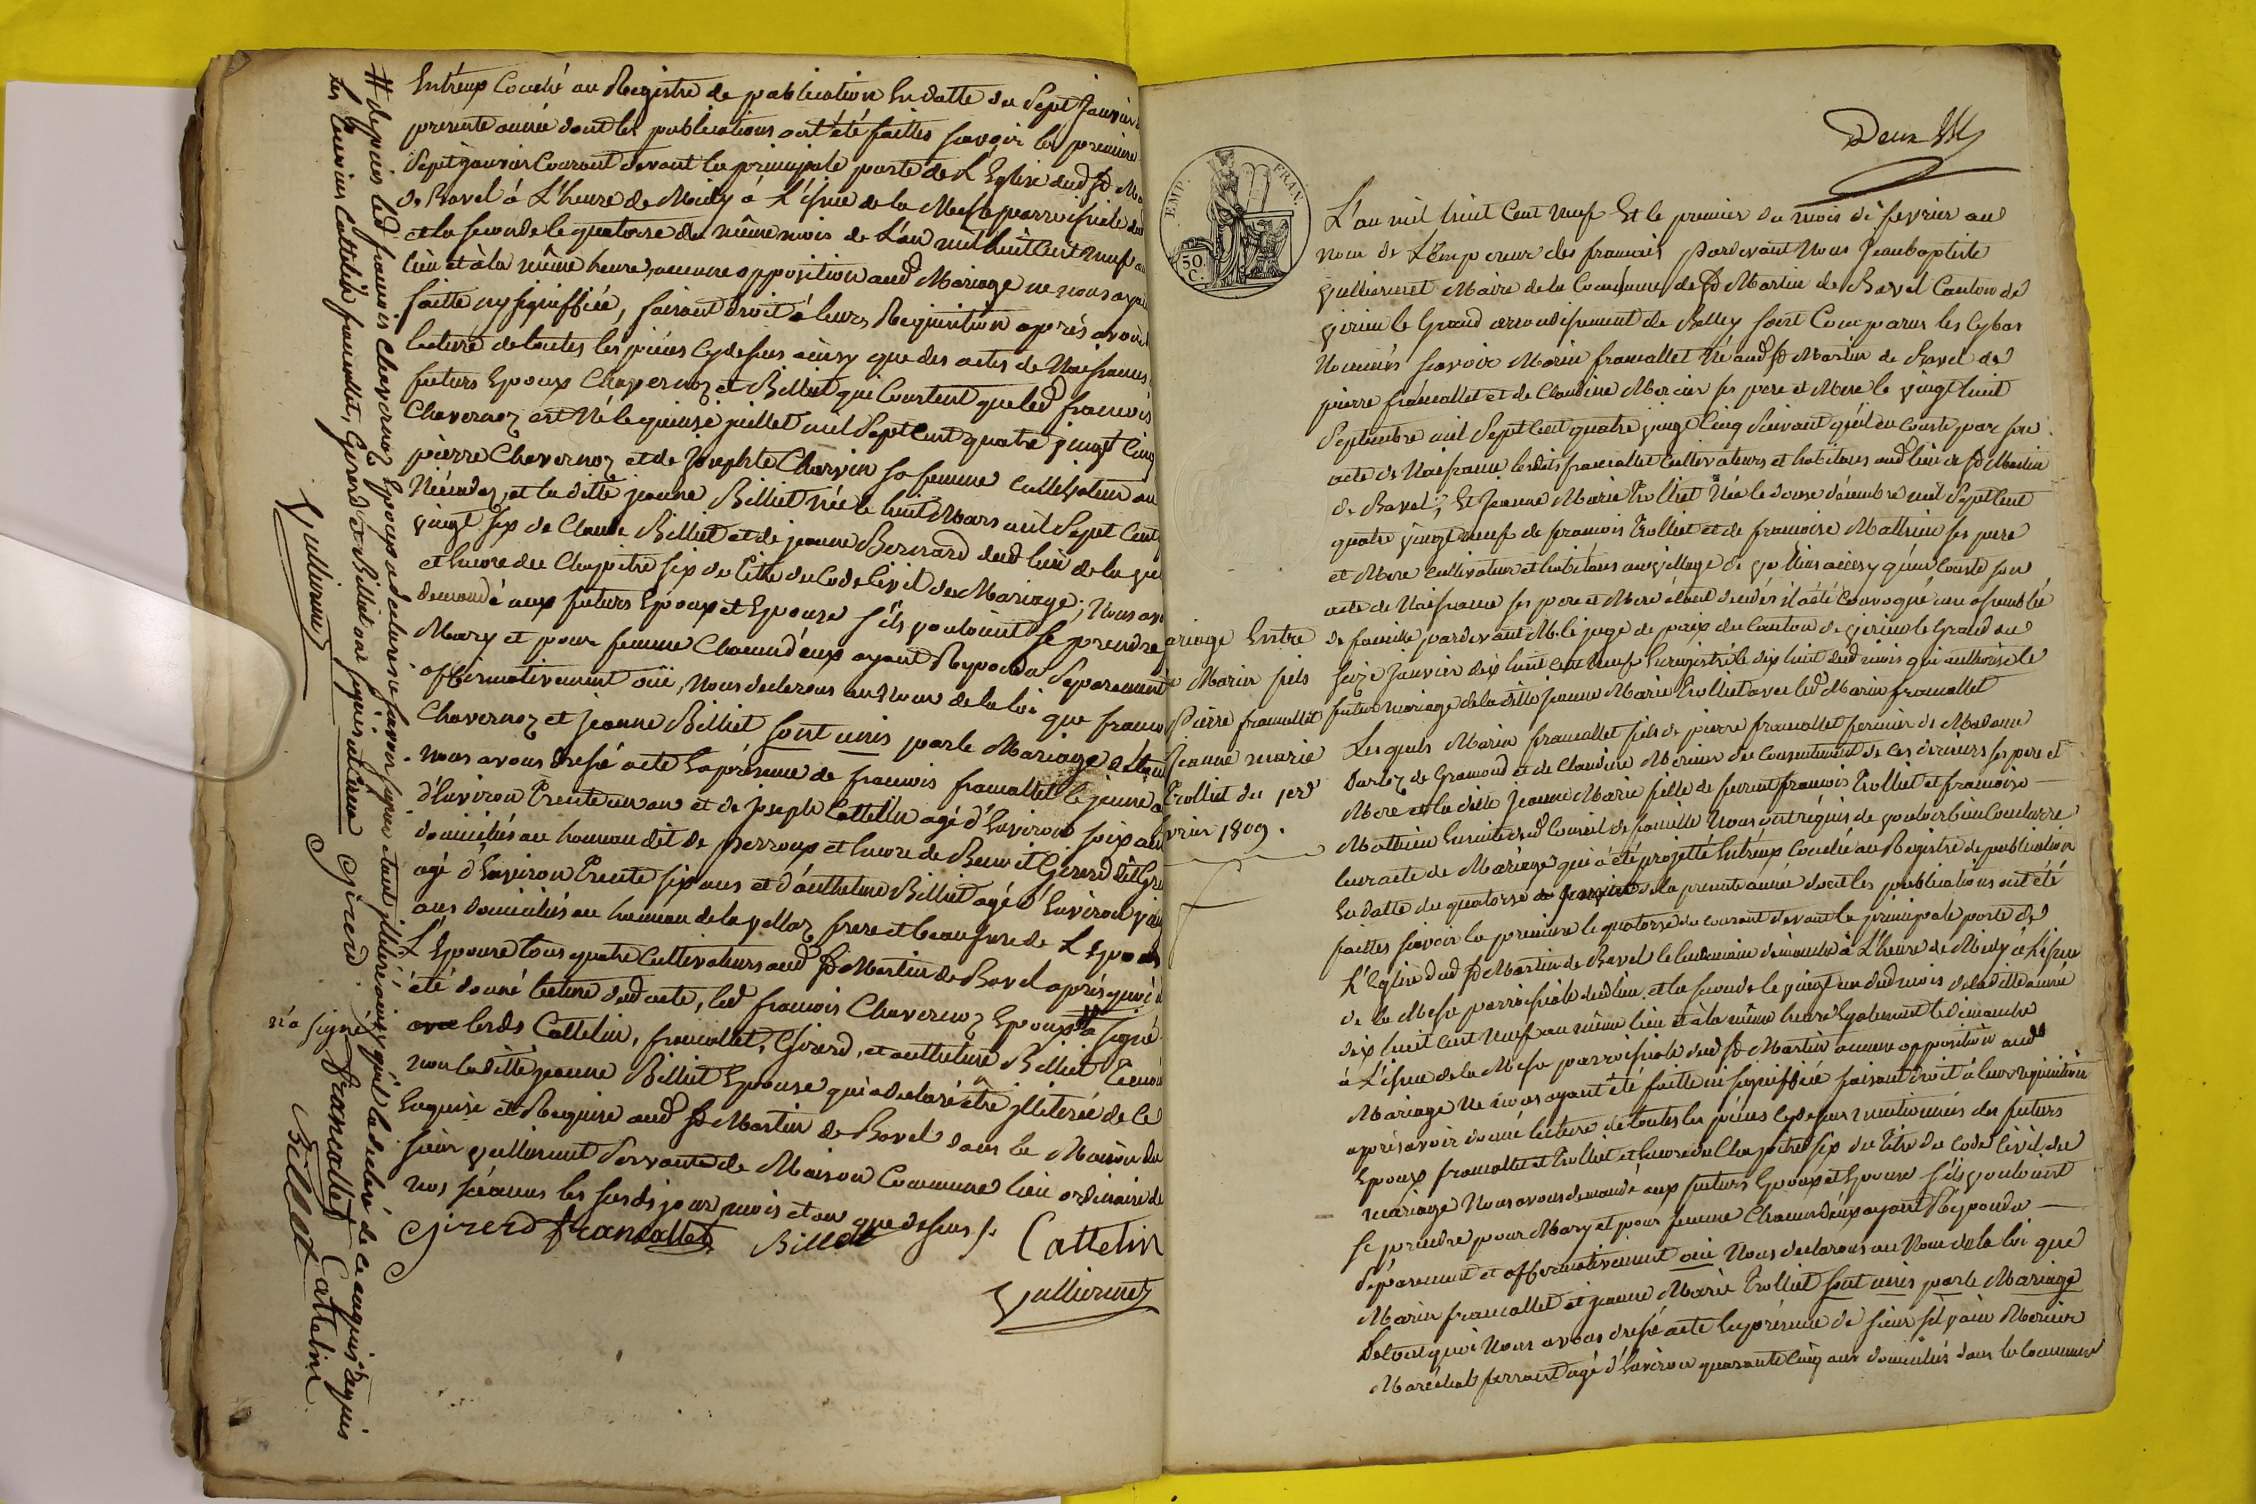 Entréux Couché au Registre de publication En datte du Sept Janvier
presente année dont les publications ont été faittes savoir la premiere
Sept janvier Courant devant la principale porte de L'Eglise dud St Ma
de Bavel à L'heure de Midy à L'issue de la Messe parroissiale dud
et la seconde le quatorze du même mois de L'an mil huit Cent neuf au
lieu et à la même heure, aucune opposition aud Mariage ne nous ayant
faitte ny signiffiée, faisant droit à leurs Requisition après avoir
lecture de toutes les pièces cy dessus ainsy que des actes de Naissances
futurs Epoux Chavernoz et Billiet qui Constent que led francois
Chavernoz est Né le quinze juillet mil Sept Cent quatre vingt Cinq
pierre Chavernoz et de Josephte Charvin sa femme Cultivateur au
et la ditte jeanne Billiet née le huit Mars mil Sept Cent
vingt six de Claude Billiet et de jeanne Bernard dud lieu de la
et Encore du Chapitre six du Titre du Code Civil du Mariage; Nous avo
demandé aux futurs Epoux et Epouse s'ils vouloient se prendre
Mary et pour femme Chacun d'eux ayant Repondu Séparement
affirmativement oüi, Nous declarons au Nom de la loi que franco
Chavernoz et Jeanne Billiet sont unis par le Mariage de tou
nous avons dressé acte En présence de francois francallet le jeune a
d'Environ Trente un ans et de joseph Cattelin agé d'Environ soix an
domiciliés au hameau dit de perroux et Encore de Benoit Girerd dit
agé d'Environ Trente six ans et d'anthelme Billiet agé d'Environ vin
ans domiciliés au hameau de la vellaz frere et beaufrere de L'Epoux
L'Epouse tous quatre Cultivateurs aud St Martin de Bavel après qu'il a
été donné lecture dud acte, led francois Chavernoz Epoux # a signé
avec lesds Cattelin, francallet, Girerd, et anthelme Billiet Temoi
non la ditte jeanne Billiet Epouse qui a declaré être illiterée de ce
Enquise et Requise aud St Martin de Bavel dans la Maison du
sieur Vullierment Servante de Maison Commune lieu ordinaire de
nos séances les susds jour mois et an que dessus /.
Girerd francallet Billet Cattelin
Vulliermet
# depuis led francois Chavernoz Epoux a declaré ne savoir signer etant illiteré ainsy qu'il la declaré de ce enquis depuis
Les Temoins Cattelin francallet, Girerd et Billiet ont signés et
Vulliermet
Girerd
n'a signé
francallet Cattelin
Billet
Deux
EMP. FRAN.
50 C.
L'an mil huit Cent Neuf Et le premier du mois de fevrier au
nom de L'Empereur des francais pardevant Nous Jean baptiste
Vulliermet Maire de la Commune de St Martin de Bavel Canton de
Virieu le Grand arrondissement de Belley sont Comparus les cybas
Nommés savoir Marin francallet Né aud St Martin de Bavel de
pierre francallet et de Claudine Mercier ses pere et Mere le vingt huit
Septembre mil Sept Cent quatre vingt Cinq Suivant qu'il en Conste par son
acte de Naissance lesdits francallet Cultivateurs et habitans aud lieu de St Martin
de Bavel; Et Jeanne Marie Trolliet Née le douze décembre mil Sept Cent
quatre vingt neuf de francois Trolliet et de francoise Mathieu ses pere
et Mere Cultivateur et habitans au village de Vollien ainsy qu'en Conste son
acte de Naissance ses pere et Mere étant décédés il a été Convoqué une assemblée
de famille pardevant M. le juge de paix du Canton de Virieu le Grand du
Seize Janvier dix huit Cent Neuf Enregistré le dix huit dud mois qui authorise le
futur mariage de la ditte jeanne Marie Trolliet avec led Marin francallet
ariage Entre
Marin fils
Pierre francallet
Jeanne marie
Trolliet du 1er
fevrier 1809.
Lesquels Marin francallet fils de pierre francallet fermier de Madame
Darloz de Gramond et de Claudine Mercier du Consentement de Ces derniers ses pere et
Mere et la ditte Jeanne Marie fille de feu francois Trolliet et francoise
Mathieu Ensuite dud Conseil de famille Nous ont réquis de vouloir bien Conclurre
leur acte de Mariage qui a été projetté Entréux Couché au Registre de publication
En datte du quatorze de janvier de la presente année dont les publications ont été
faittes savoir la premiere le quatorze du courant devant la principale porte de
L'Eglise dud St Martin de Bavel le lendemain dimanche à L'heure de Midy à L'issue
de la Messe parroissiale dud lieu et la seconde le vingt un dud mois de la ditte année
dix huit Cent Neuf au même lieu et à la même heure Egalement le dimanche
à L'issue de la Messe parroissiale dud St Martin aucune opposition aud
Mariage Ne nous ayant été faitte ni signiffiée faisant droit à leur requisition
après avoir donné lecture de toutes les pièces cy dessus mentionnées des futurs
Epoux francallet et Trolliet et Encore du Chapitre six du Titre du Code Civil du
mariage Nous avons demandé aux futurs Epoux et Epouse s'ils vouloient
se prendre pour Mary et pour femme Chacun d'eux ayant Repondu
Séparement et affirmativement oui Nous declarons au Nom de la loi que
Marin francallet et jeanne Marie Trolliet sont unis par le Mariage
De tout quoi Nous avons dressé acte En présence de sieur Silvain Mercier
Maréchal ferrant agé d'Environ quarante Cinq ans domiciliés dans la Commune